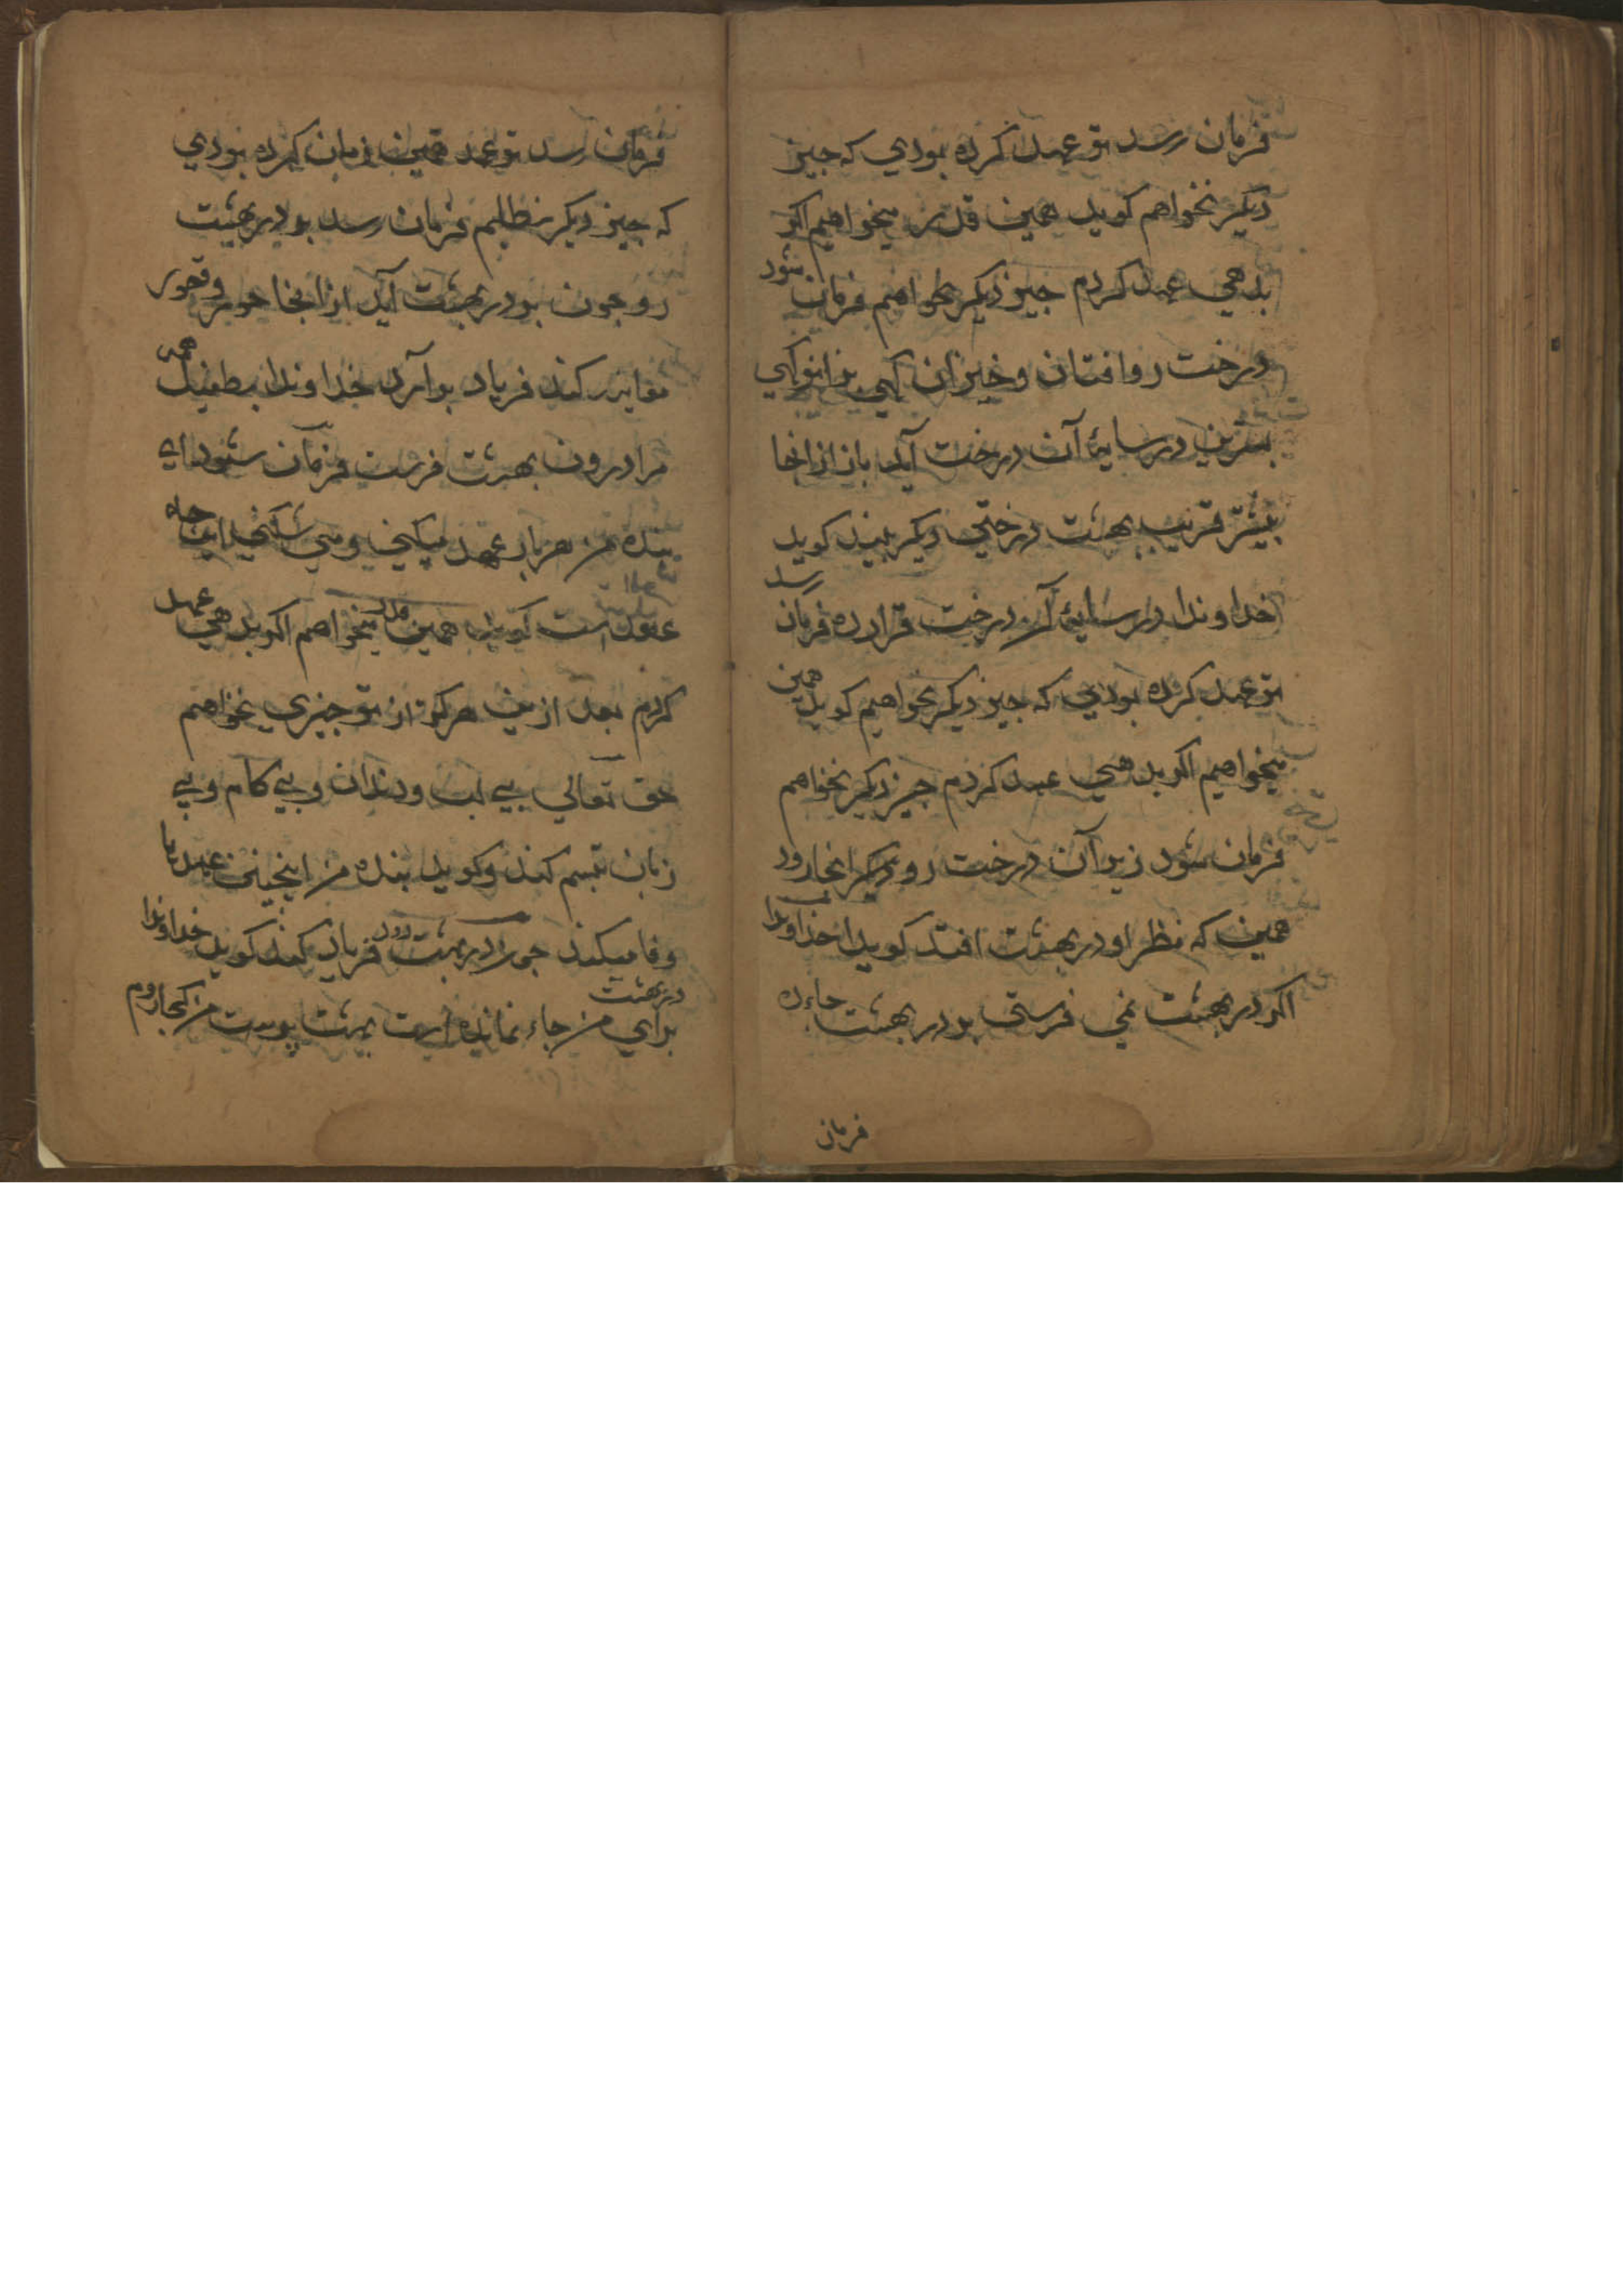 فرمان رسد تو عهد کرده بودي که جیز
دیکر نخواهم کوید همین قدر میخواهیم اکر
بدهي عهد کردم جیز دیکر نخواهم فرمان شود
درخت رو افتان و خیزان کهي بزانو کهي
بسرین در سایهٔ آن درخت آید باز از انجا
بیشتر قریب بهشت درختي دیکر بیند کوید
خداوندا در سایهٔ آن درخت قرار ده فرمان رسد
تو عهد کرده بودي که جیز دیکر نخواهیم کوید همین
میخواهیم اکر بدهي عهد کردم جیز دیکر نخواهم
فرمان شود زیر آن درخت رو دیکر انجا رود
همین که نظر او در بهشت افتد کوید خداوندا
اکر در بهشت نمي فرستي بر در بهشت جاء ده
فرمان
فرمان رسد تو عهد همین زمان کرده بودي
که جیز دیکر نطلبم فرمان رسد بر در بهشت
رو جون بر در بهشت آید از انجا حور و قصور
معاینه کند فریاد بر آرد خداوندا بطفیل همه
مرا درون بهشت فرست فرمان شود اي
بنده من هر بار عهد میکني و مي شکني این جه
عقد است کوید همین قدر میخواهم اکر بدهي عهد
کردم بعد ازین هرکز از تو جیزي نخواهم
حق تعالي بي لب و دندان و بي کام و بي
زبان تبسم کند و کوید بنده من اینجنین عهد ها
وفا میکند جون در بهشت رود فریاد کند کوید خداوندا
براي من جاء نمانده است در بهشت بهشت پرست من کجا روم